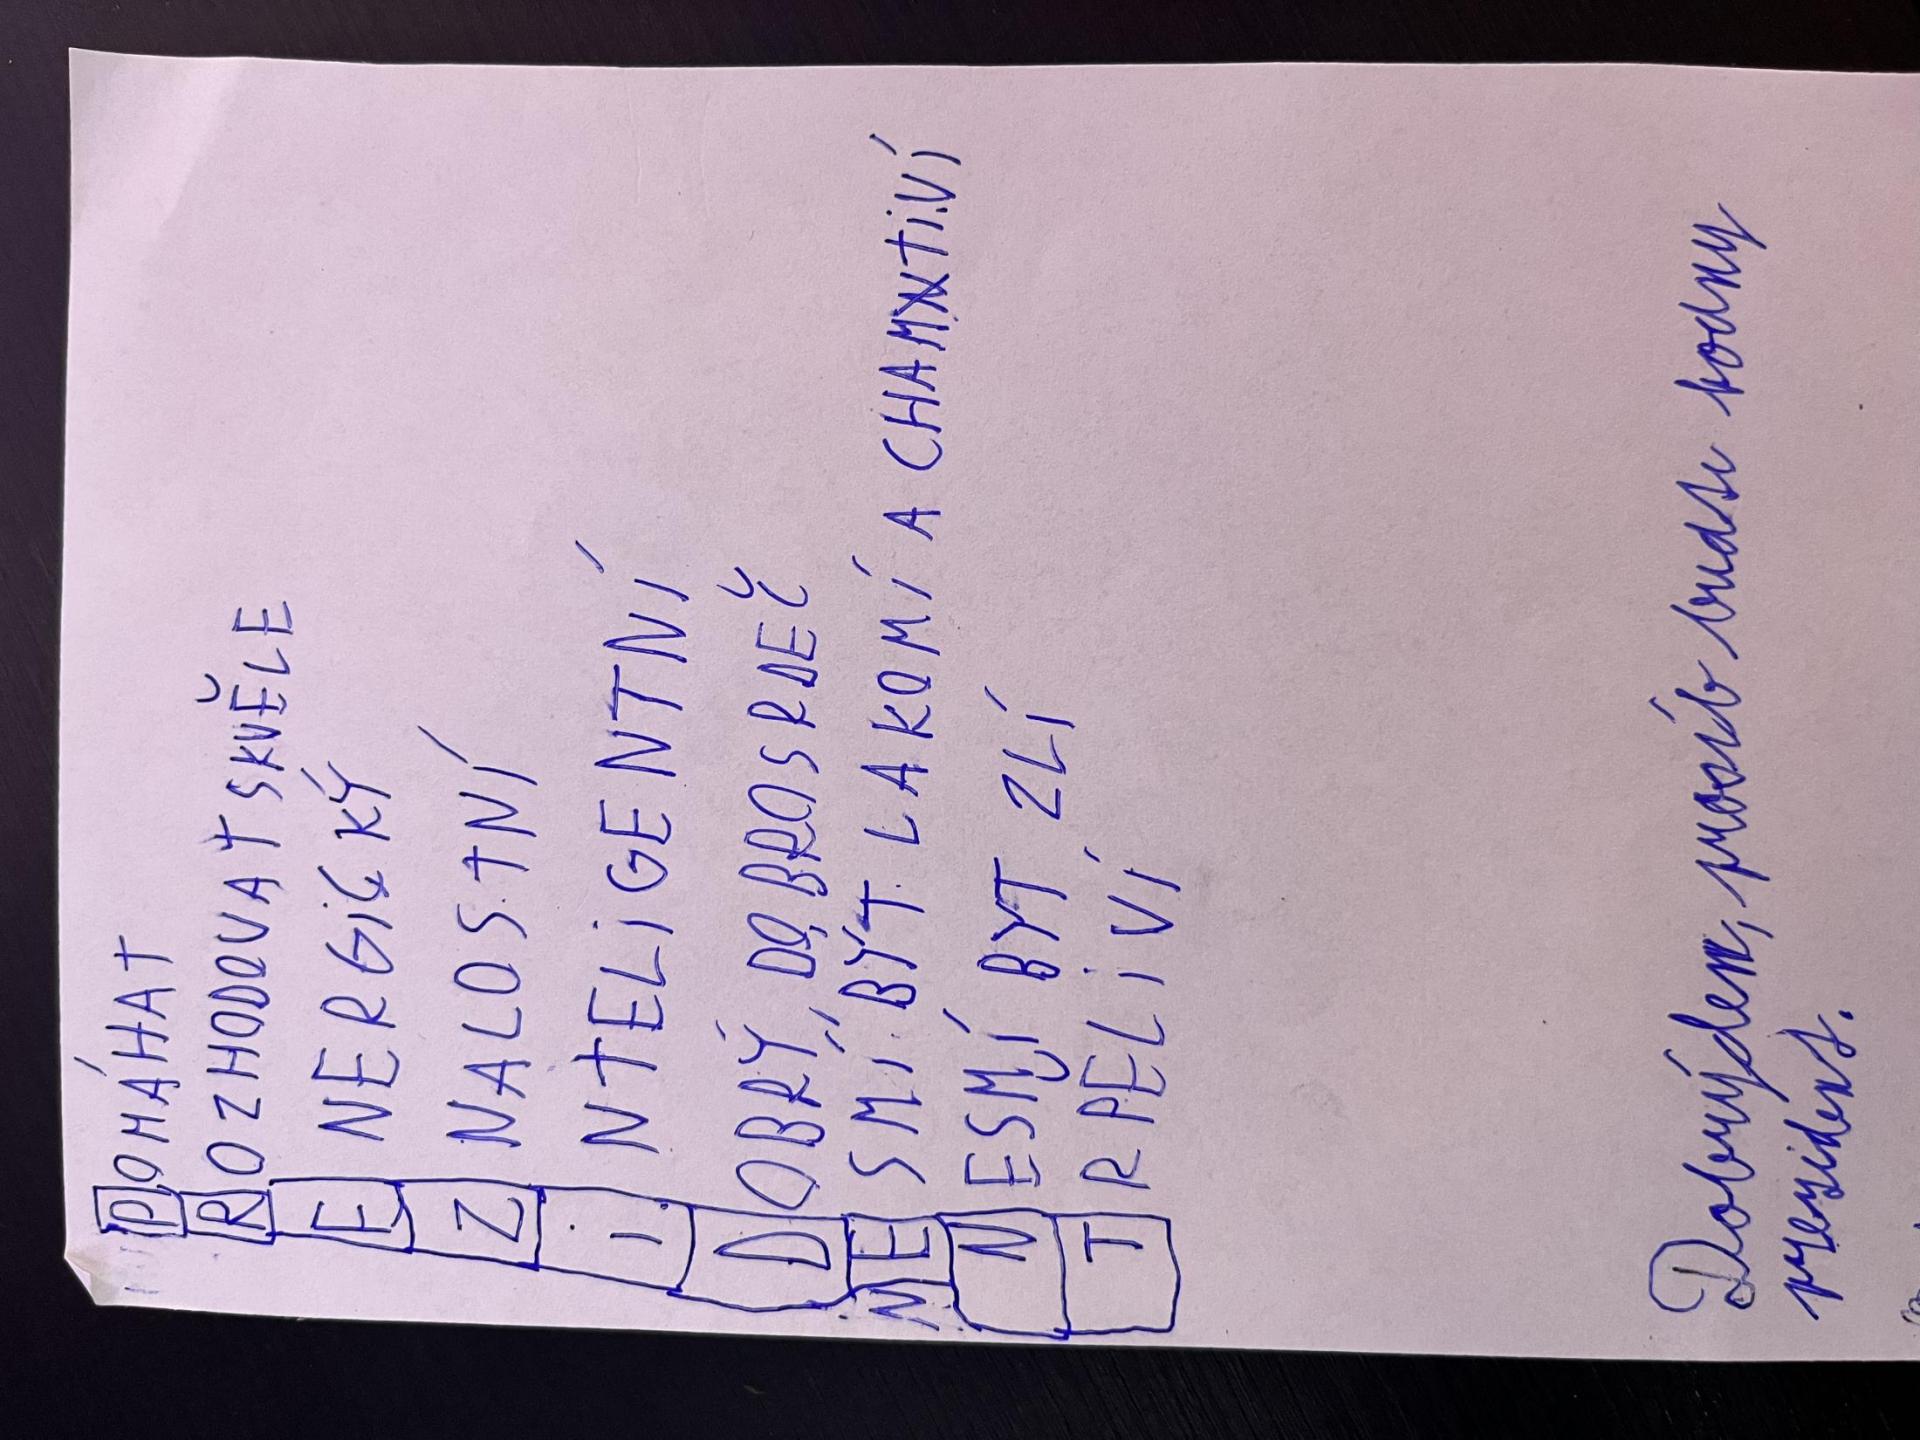 POMÁHAT
ROZHODOVAT SKVĚLE
ENERGICKÝ
ZNALOSTNÍ
INTELIGENTNÍ
DOBRÝ, DOBROSRDEČ
NESMÍ BÝT LAKOMÍ A CHAMTIVÍ
NESMÍ BYT ZLÍ
TRPELIVÍ
Dobrýden, prosíb budte hodny
prezident.